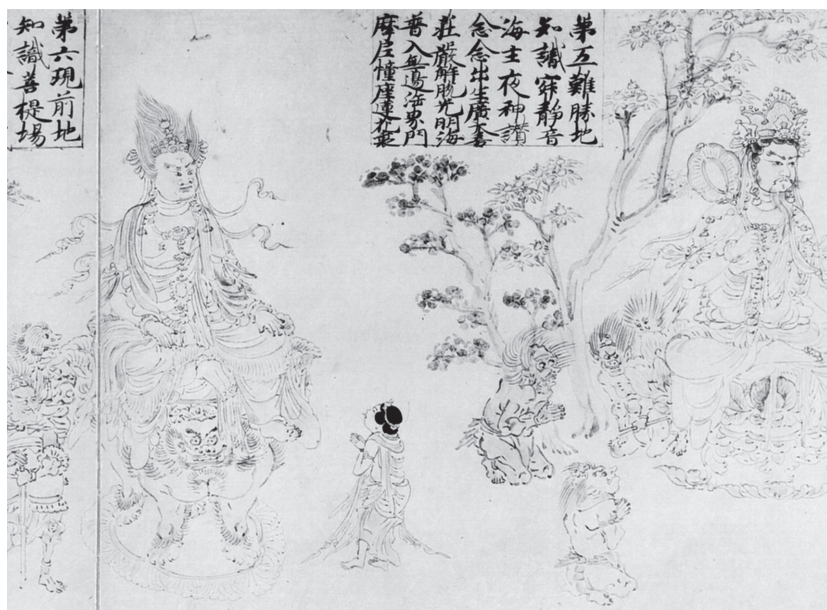 第五難勝地
知識寂静音
海主夜神讃
念念出生廣大喜
莊嚴解脱光明海
普入無邊海門
摩尼幢座蓮花
第六現前地
知識善提場